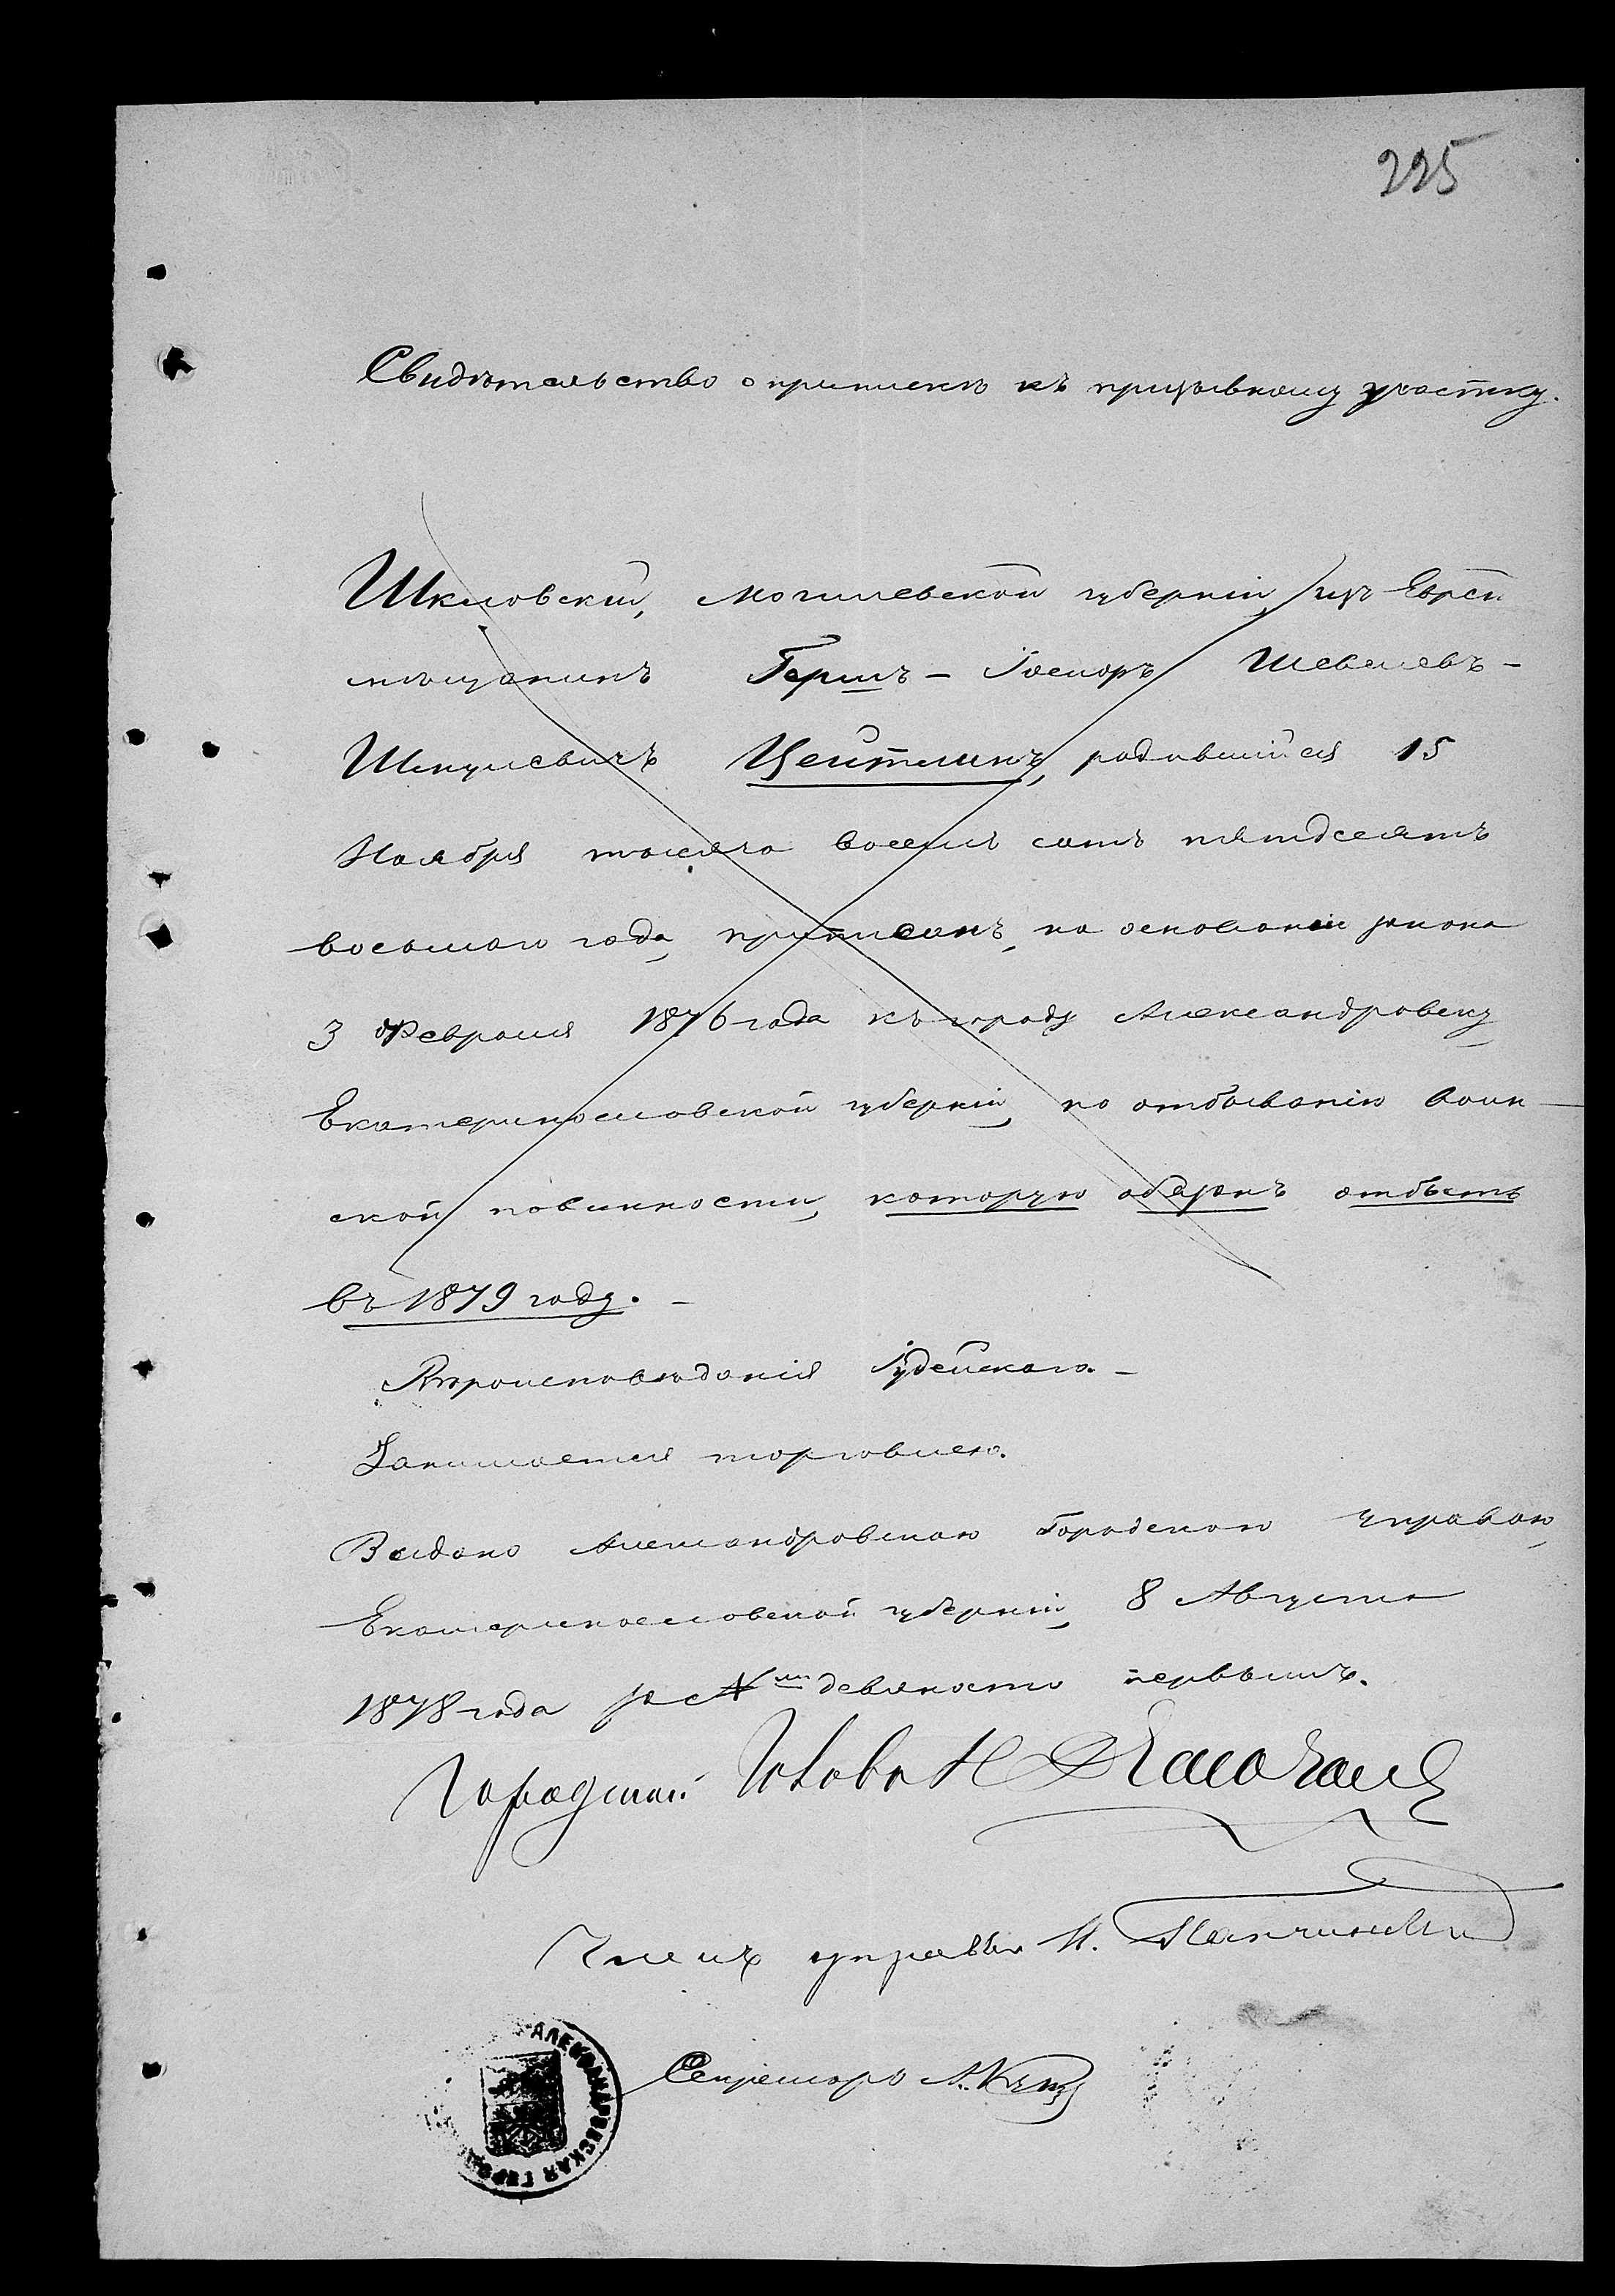 225
Свидѣтельство о припискѣ къ призывному участку.
Шкловскій, Могилевской губерніи, изъ Евреи
мѣщанинъ Гершъ - Госноръ Шевелевъ -
Шмулевичъ Цейтлинъ, родившійся 15
Ноября тысяча восемь сотъ пятдесятъ
восьмаго года, приписанъ, на основаніи закона
3 Февраля 1876 года къ городу Александровску,
Екатеринославской губерніи, по отбыванію воин-
ской повинности, которую обязанъ отбыть
въ 1879 году. -
Вѣроисповѣданія Іудейскаго. -
Занимается торговлею.
Выдано Александровскою Городскою Управою,
Екатеринославской губерніи, 8 Августа
1878 года за № девяносто первымъ.
Городской Голова Н
Членъ управы Н.
Секретарь
АЛЕКСАНДРОВСКАЯ ГОРОД